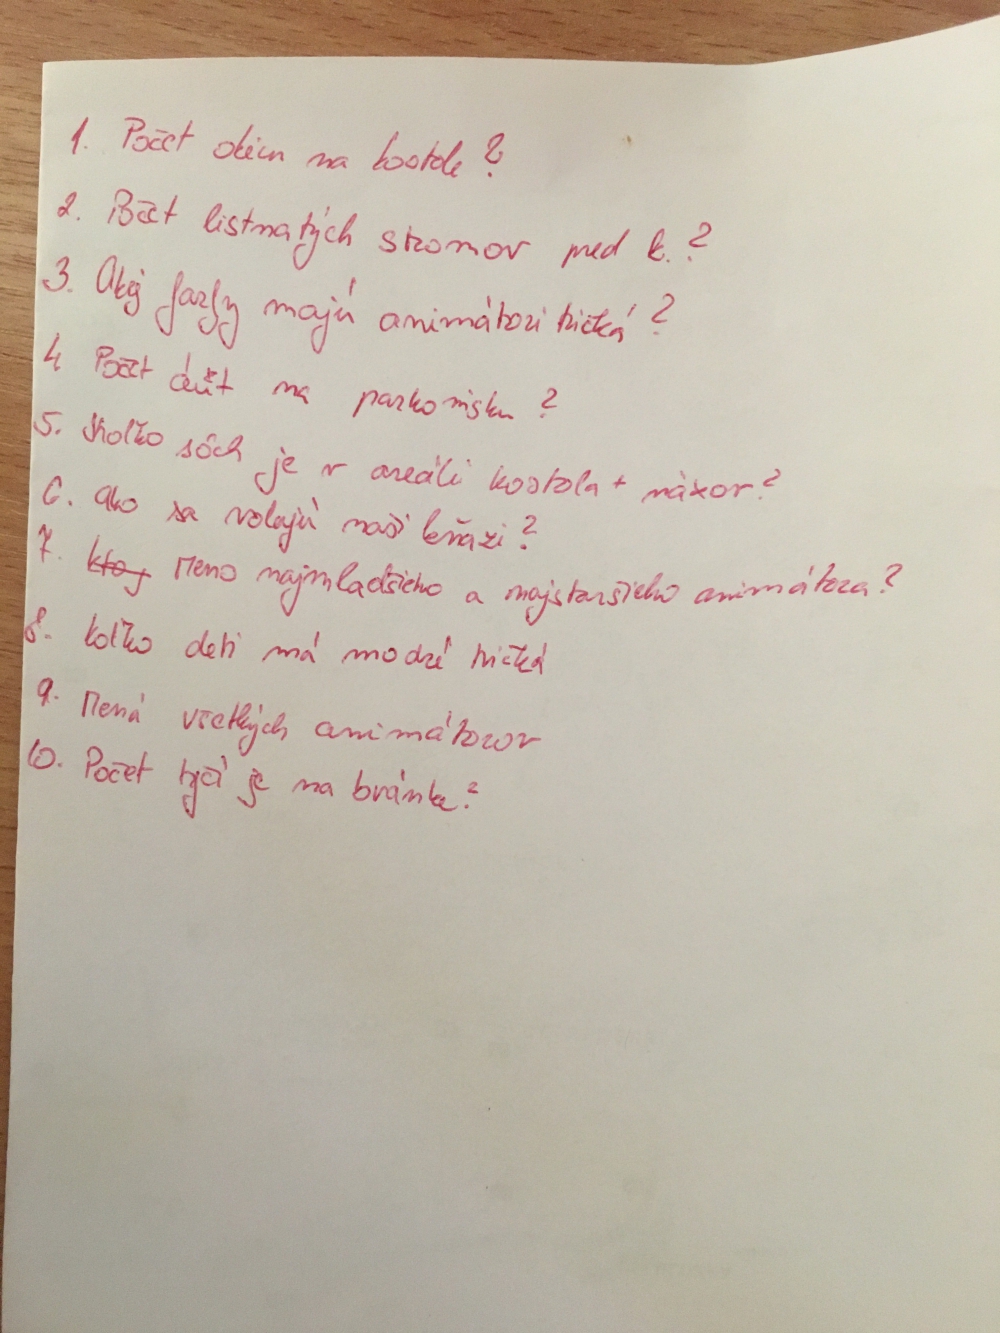 1. Počet okien na kostole?
2. Počet listnatých stromov pred k.?
3. Akej farby majú animátori tričká?
4. Počet áut na parkovisku?
5. Koľko sôch je v areáli kostola + názov?
6. Ako sa volajú naši kňazi?
7. Meno najmladšieho a najstaršieho animátora?
8. Koľko detí má modré tričká
9. Mená všetkých animátorov
10. Počet tyčí je na bránke?